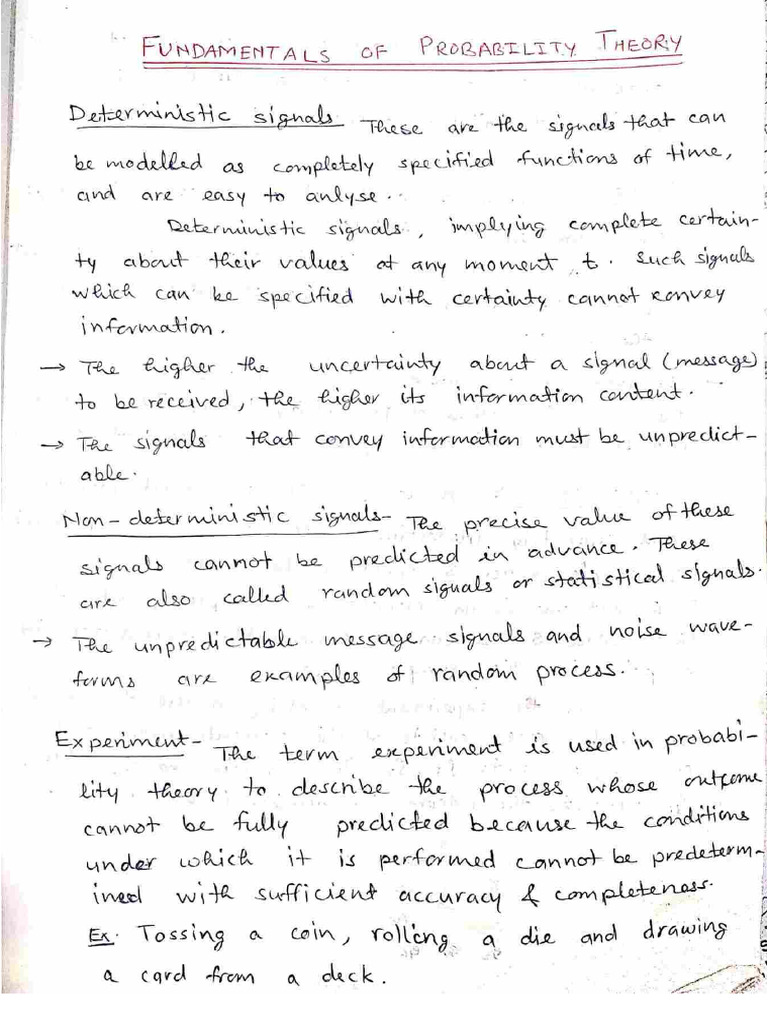 FUNDAMENTALS OF PROBABILITY THEORY
Deterministic signals These are the signals that can
be modelled as completely specified functions of time,
and are easy to anlyse.
Deterministic signals, implying complete certain-
ty about their values at any moment t. Such signals
which can be specified with certainty cannot convey
information.
→ The higher the uncertainty about a signal (message)
to be received, the higher its information content.
→ The signals that convey information must be unpredict-
able.
Non-deterministic signals- The precise value of these
signals cannot be predicted in advance. These
are also called random signals or statistical signals.
→ The unpredictable message signals and noise wave-
forms are examples of random process.
Experiment- The term experiment is used in probabi-
lity theory to describe the process whose outcome
cannot be fully predicted because the conditions
under which it is performed cannot be predeterm-
ined with sufficient accuracy & completeness.
Ex. Tossing a coin, rolling a die and drawing
a card from a deck.